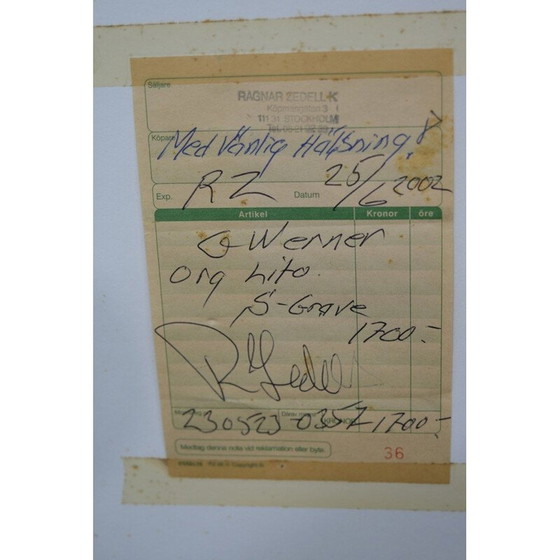 Säljare
RAGNAR ZEDELL-K
Köpmangatan 3
111 31 STOCKHOLM
Köpare
Med Vänlig Hälsning!
Exp. RZ Datum 25/6 2002
Artikel Kronor öre
G Werner
Org Lito.
S-Grave
1700:-
R Zedell
230523-0357 1700:-
Medtag denna nota vid reklamation eller byte.
36